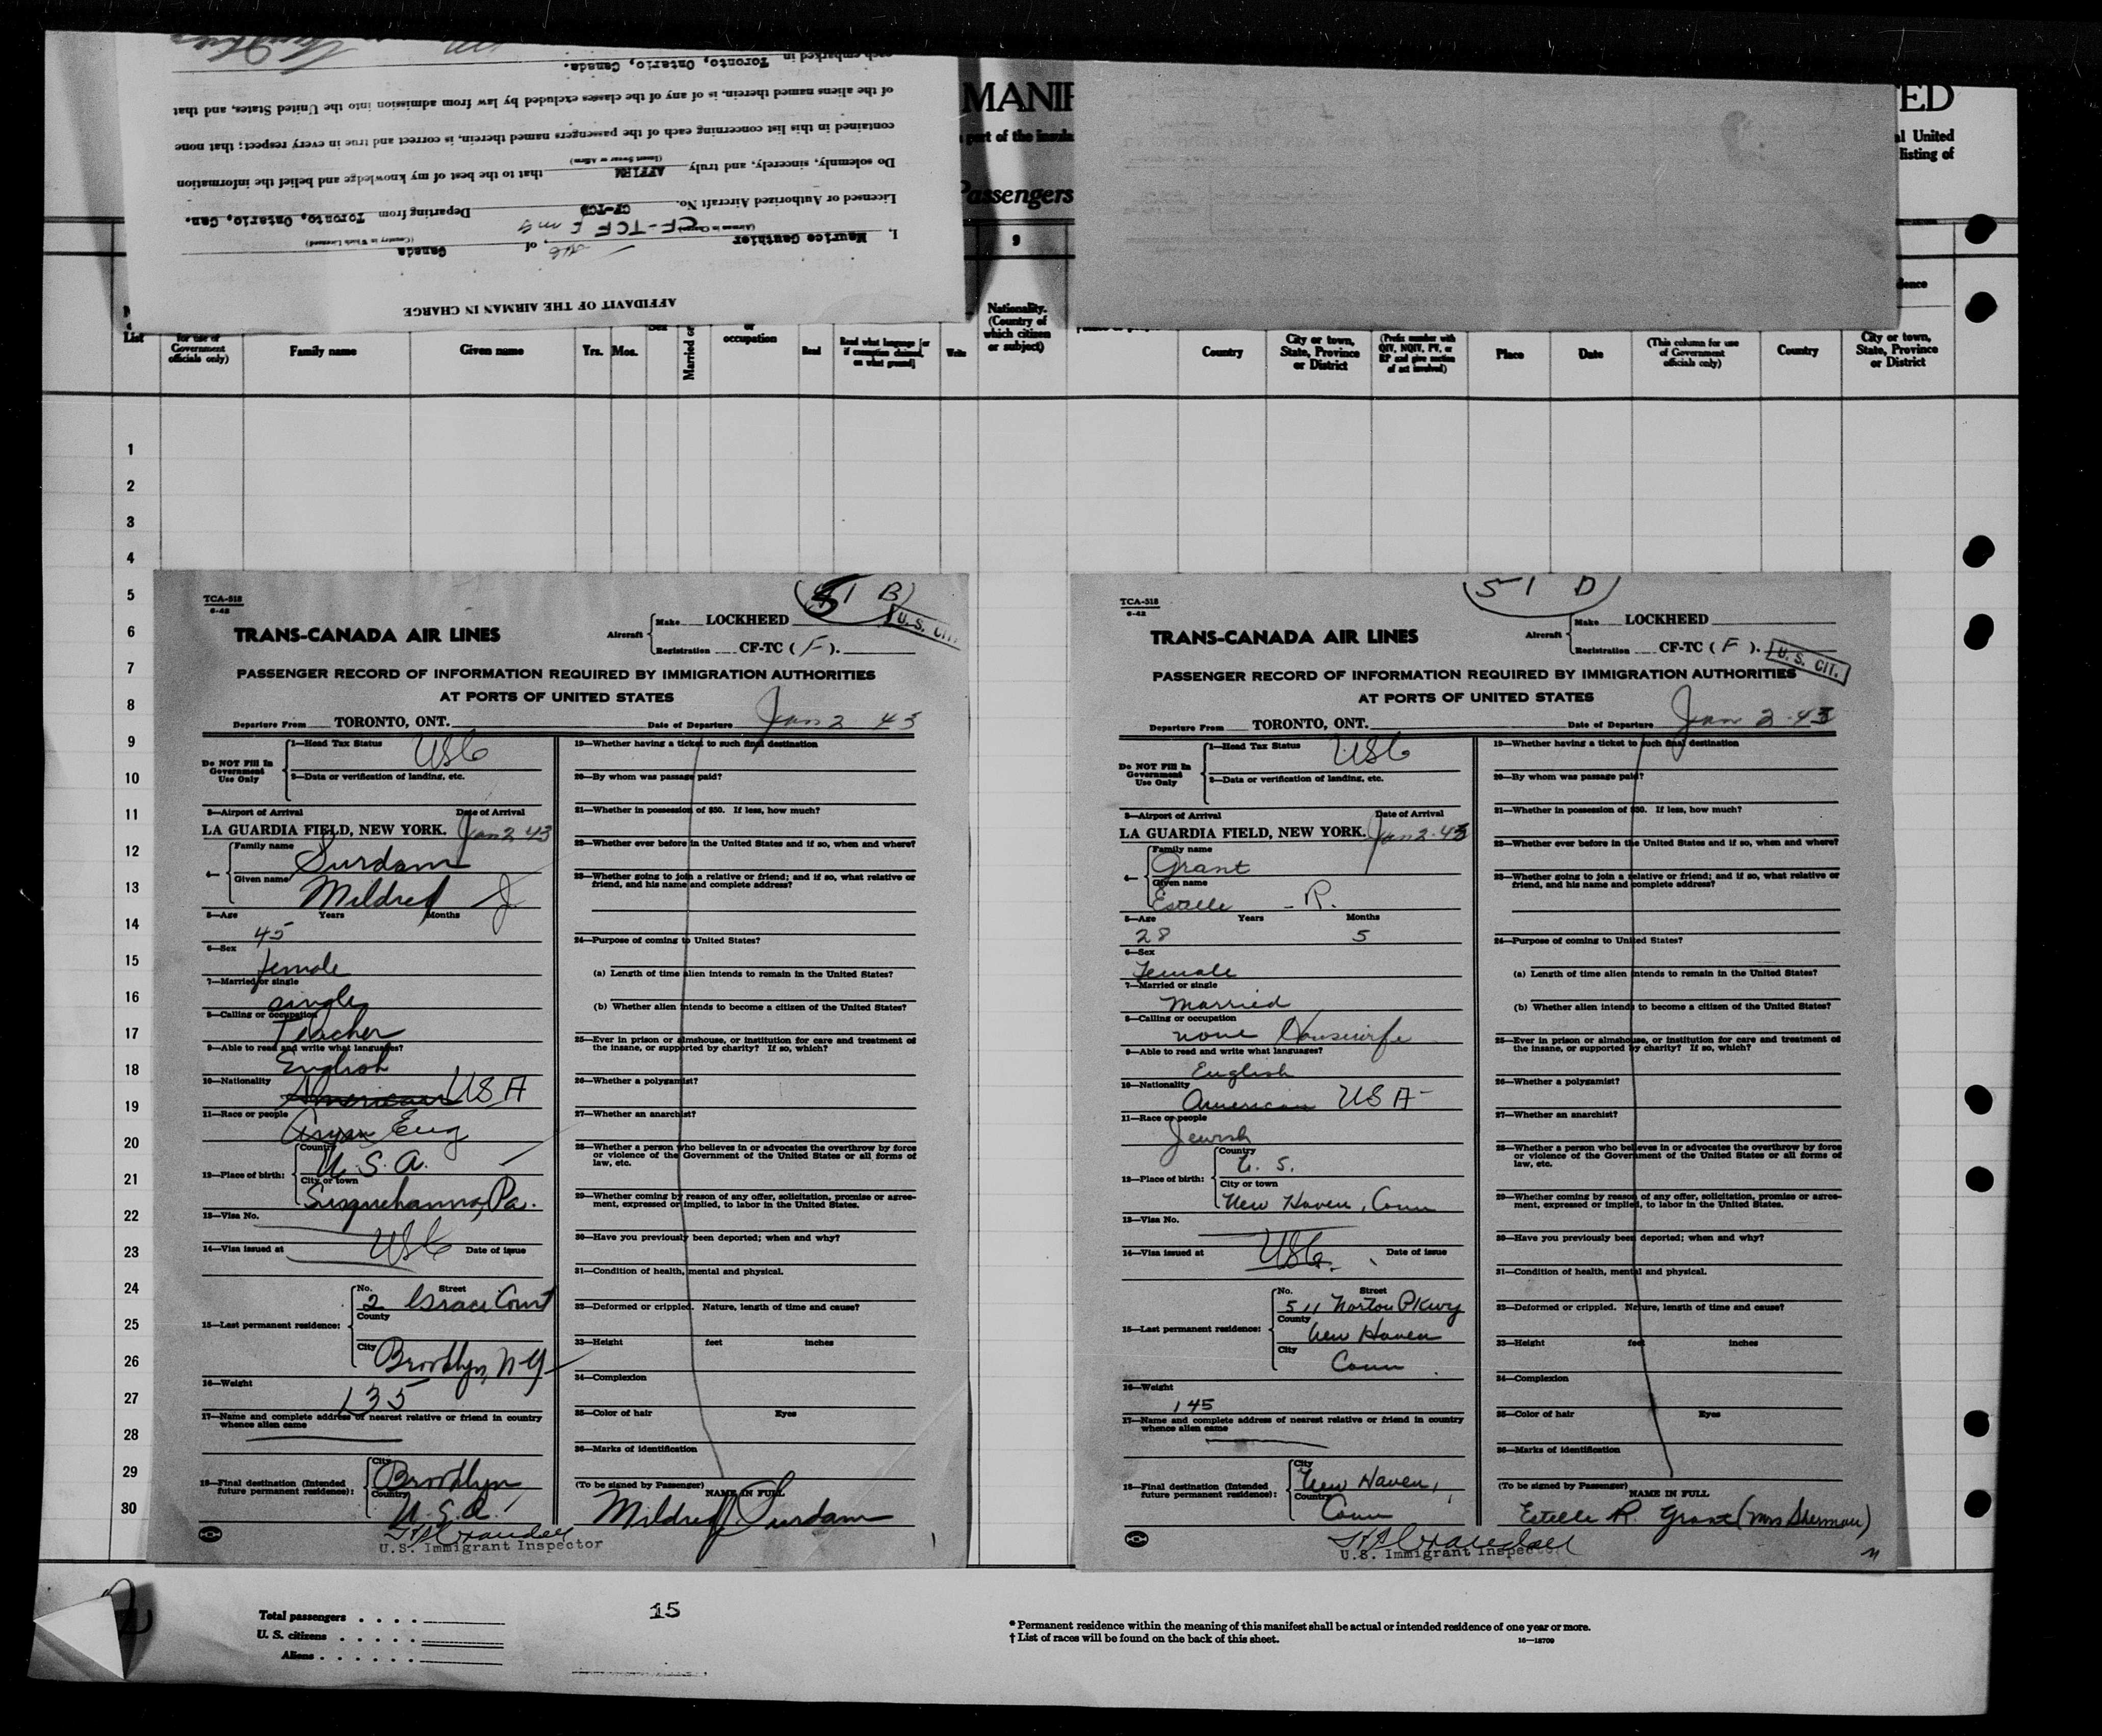 AFFIDAVIT OF THE AIRMAN IN CHARGE
I, Maurice Gauthier, of Canada
(Airman in Charge) (Country in Which Licensed)
CF-TCF
Licensed or Authorized Aircraft No. CF-TC Departing from Toronto, Ontario, Can.
Do solemnly, sincerely, and truly AFFIRM that to the best of my knowledge and belief the information
(Insert Swear or Affirm)
contained in this list concerning each of the passengers named therein, is correct and true in every respect; that none
of the aliens named therein, is of any of the classes excluded by law from admission into the United States, and that
each embarked in Toronto, Ontario, Canada.
MANIF
ED
part of the insula
al United
listing of
Passengers
9
dence
List
for use of Government officials only)
Family name
Given name
Yrs. Mos.
Sex
Married or
or occupation
Read
Read what language [or if exemption claimed, on what ground]
Write
Nationality. (Country of which citizen or subject)
Country
City or town, State, Province or District
(Prefix number with QIV, NQIV, PV, or RP and give section of act involved)
Place
Date
(This column for use of Government officials only)
Country
City or town, State, Province or District
1
2
3
4
5
6
7
8
9
10
11
12
13
14
15
16
17
18
19
20
21
22
23
24
25
26
27
28
29
30
TCA-518
6-42
51 B
U. S. CIT.
TRANS-CANADA AIR LINES
Aircraft
Make LOCKHEED
Registration CF-TC ( F ).
PASSENGER RECORD OF INFORMATION REQUIRED BY IMMIGRATION AUTHORITIES
AT PORTS OF UNITED STATES
Departure From TORONTO, ONT. Date of Departure Jan 2 43
Do NOT Fill In Government Use Only
1—Head Tax Status USC
2—Data or verification of landing, etc.
3—Airport of Arrival Date of Arrival
LA GUARDIA FIELD, NEW YORK. Jan 2 43
4—
Family name Surdam
Given name Mildred J
5—Age Years Months
45
6—Sex
female
7—Married or single
single
8—Calling or occupation
Teacher
9—Able to read and write what languages?
English
10—Nationality
American USA
11—Race or people
Aryan Eng
12—Place of birth:
Country
U. S. A.
City or town
Susquehanna, Pa.
13—Visa No.
14—Visa issued at USC Date of issue
15—Last permanent residence:
No. Street
2 Grace Court
County
City
Brooklyn, N-Y
16—Weight
135
17—Name and complete address of nearest relative or friend in country
whence alien came
18—Final destination (Intended
future permanent residence):
City
Brooklyn
Country
U. S. A.
U.S. Immigrant Inspector
19—Whether having a ticket to such final destination
20—By whom was passage paid?
21—Whether in possession of $50. If less, how much?
22—Whether ever before in the United States and if so, when and where?
23—Whether going to join a relative or friend; and if so, what relative or
friend, and his name and complete address?
24—Purpose of coming to United States?
(a) Length of time alien intends to remain in the United States?
(b) Whether alien intends to become a citizen of the United States?
25—Ever in prison or almshouse, or institution for care and treatment of
the insane, or supported by charity? If so, which?
26—Whether a polygamist?
27—Whether an anarchist?
28—Whether a person who believes in or advocates the overthrow by force
or violence of the Government of the United States or all forms of
law, etc.
29—Whether coming by reason of any offer, solicitation, promise or agree-
ment, expressed or implied, to labor in the United States.
30—Have you previously been deported; when and why?
31—Condition of health, mental and physical.
32—Deformed or crippled. Nature, length of time and cause?
33—Height feet inches
34—Complexion
35—Color of hair Eyes
36—Marks of identification
(To be signed by Passenger)
NAME IN FULL
Mildred J. Surdam
TCA-518
6-42
51 D
U. S. CIT.
TRANS-CANADA AIR LINES
Aircraft
Make LOCKHEED
Registration CF-TC ( F ).
PASSENGER RECORD OF INFORMATION REQUIRED BY IMMIGRATION AUTHORITIES
AT PORTS OF UNITED STATES
Departure From TORONTO, ONT. Date of Departure Jan 2-43
Do NOT Fill In Government Use Only
1—Head Tax Status USC
2—Data or verification of landing, etc.
3—Airport of Arrival Date of Arrival
LA GUARDIA FIELD, NEW YORK. Jan 2-43
4—
Family name
Grant
Given name
Estelle - R.
5—Age Years Months
28 5
6—Sex
Female
7—Married or single
Married
8—Calling or occupation
none Housewife
9—Able to read and write what languages?
English
10—Nationality
American USA
11—Race or people
Jewish
12—Place of birth:
Country
U. S.
City or town
New Haven, Conn
13—Visa No.
14—Visa issued at USC. Date of issue
15—Last permanent residence:
No. Street
511 Norton Pkwy
County
New Haven
City
Conn
16—Weight
145
17—Name and complete address of nearest relative or friend in country
whence alien came
18—Final destination (Intended
future permanent residence):
City
New Haven,
Country
Conn
U.S. Immigrant Inspector
19—Whether having a ticket to such final destination
20—By whom was passage paid?
21—Whether in possession of $50. If less, how much?
22—Whether ever before in the United States and if so, when and where?
23—Whether going to join a relative or friend; and if so, what relative or
friend, and his name and complete address?
24—Purpose of coming to United States?
(a) Length of time alien intends to remain in the United States?
(b) Whether alien intends to become a citizen of the United States?
25—Ever in prison or almshouse, or institution for care and treatment of
the insane, or supported by charity? If so, which?
26—Whether a polygamist?
27—Whether an anarchist?
28—Whether a person who believes in or advocates the overthrow by force
or violence of the Government of the United States or all forms of
law, etc.
29—Whether coming by reason of any offer, solicitation, promise or agree-
ment, expressed or implied, to labor in the United States.
30—Have you previously been deported; when and why?
31—Condition of health, mental and physical.
32—Deformed or crippled. Nature, length of time and cause?
33—Height feet inches
34—Complexion
35—Color of hair Eyes
36—Marks of identification
(To be signed by Passenger)
NAME IN FULL
Estelle R. Grant (Mrs Sherman)
2
Total passengers . . . .
U. S. citizens . . . . .
Aliens . . . . . .
15
* Permanent residence within the meaning of this manifest shall be actual or intended residence of one year or more.
† List of races will be found on the back of this sheet.
16—18709